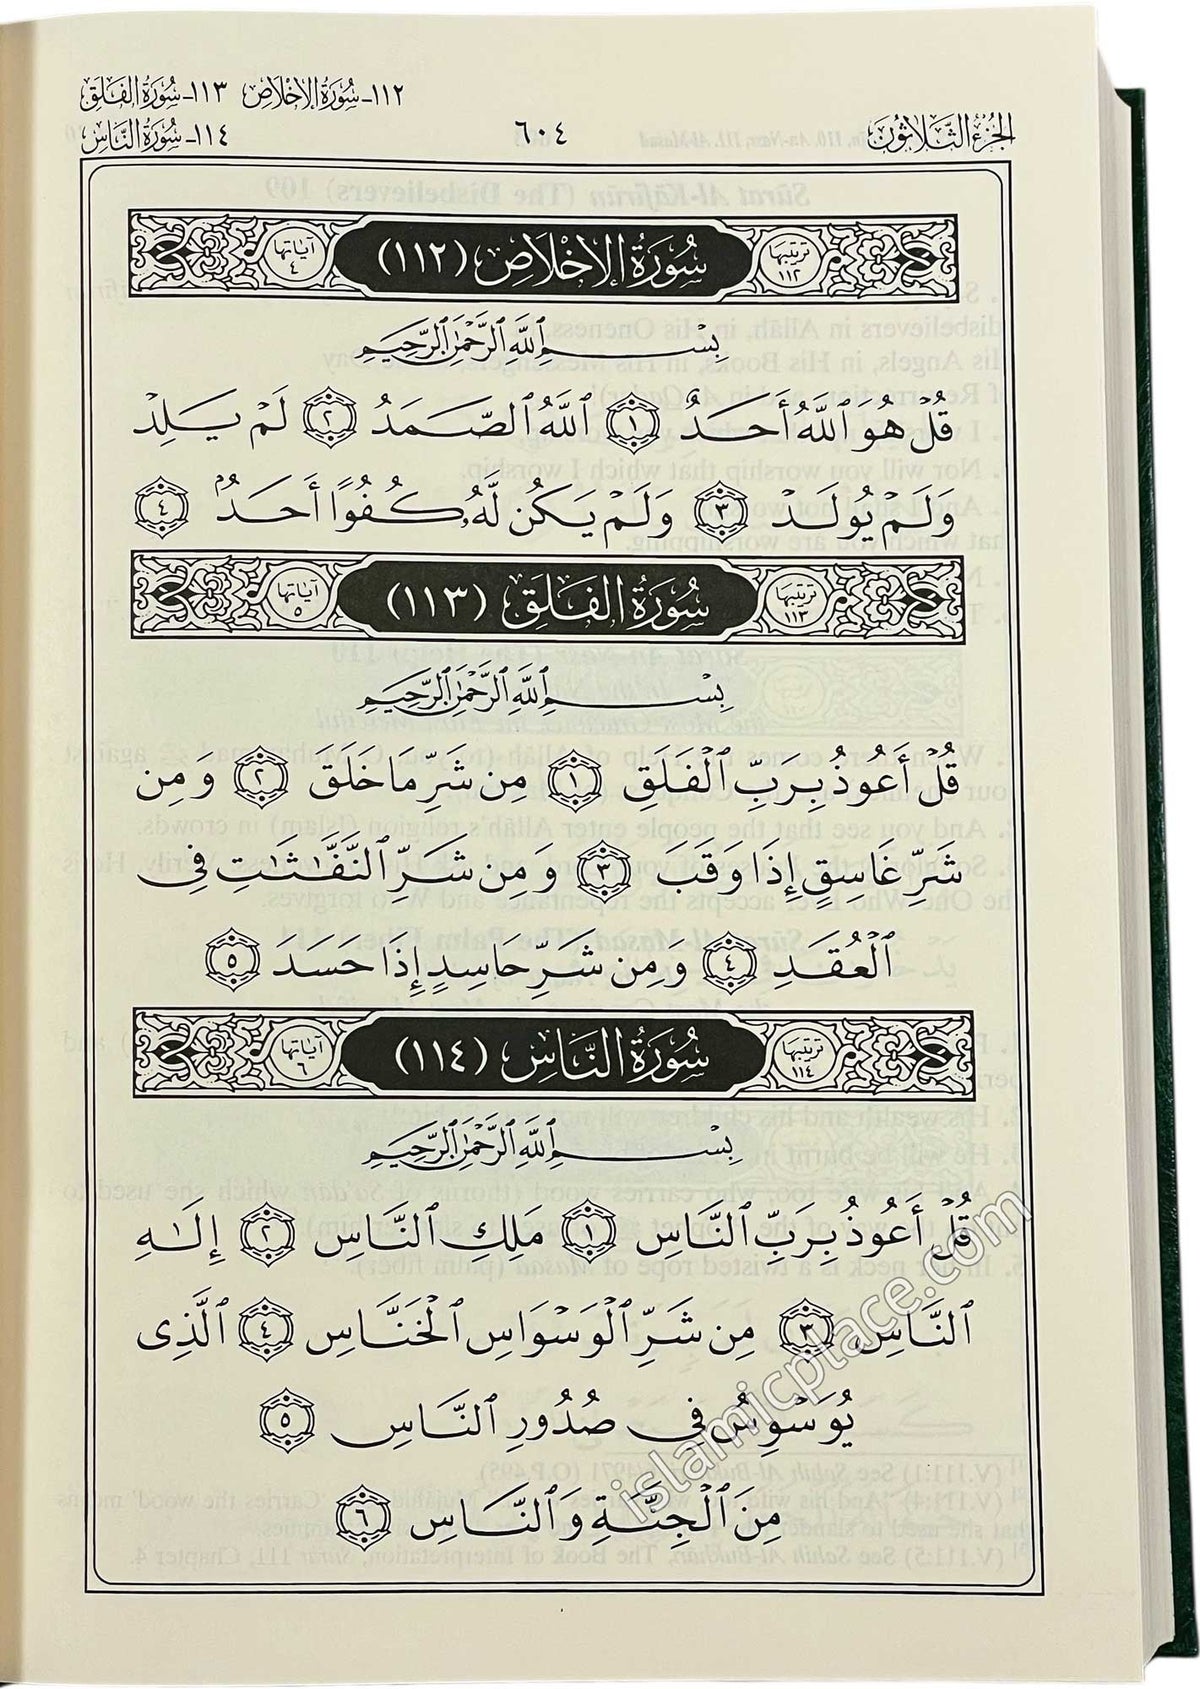 ١١٢ـ سُورَةُ الإِخْلَاصِ ١١٣ـ سُورَةُ الفَلَقِ
الجُزءُ الثَّلَاثُونَ ٦٠٤ ١١٤ـ سُورَةُ النَّاسِ
ترتيبها ١١٢ سُورَةُ الإِخْلَاصِ (١١٢) آياتها ٤
بِسْمِ ٱللَّهِ ٱلرَّحْمَٰنِ ٱلرَّحِيمِ
قُلْ هُوَ ٱللَّهُ أَحَدٌ ١ ٱللَّهُ ٱلصَّمَدُ ٢ لَمْ يَلِدْ
وَلَمْ يُولَدْ ٣ وَلَمْ يَكُن لَّهُۥ كُفُوًا أَحَدٌۢ ٤
ترتيبها ١١٣ سُورَةُ الفَلَقِ (١١٣) آياتها ٥
بِسْمِ ٱللَّهِ ٱلرَّحْمَٰنِ ٱلرَّحِيمِ
قُلْ أَعُوذُ بِرَبِّ ٱلْفَلَقِ ١ مِن شَرِّ مَا خَلَقَ ٢ وَمِن
شَرِّ غَاسِقٍ إِذَا وَقَبَ ٣ وَمِن شَرِّ ٱلنَّفَّٰثَٰتِ فِى
ٱلْعُقَدِ ٤ وَمِن شَرِّ حَاسِدٍ إِذَا حَسَدَ ٥
ترتيبها ١١٤ سُورَةُ النَّاسِ (١١٤) آياتها ٦
بِسْمِ ٱللَّهِ ٱلرَّحْمَٰنِ ٱلرَّحِيمِ
قُلْ أَعُوذُ بِرَبِّ ٱلنَّاسِ ١ مَلِكِ ٱلنَّاسِ ٢ إِلَٰهِ
ٱلنَّاسِ ٣ مِن شَرِّ ٱلْوَسْوَاسِ ٱلْخَنَّاسِ ٤ ٱلَّذِى
يُوَسْوِسُ فِى صُدُورِ ٱلنَّاسِ ٥
مِنَ ٱلْجِنَّةِ وَٱلنَّاسِ ٦
islamicplace.com